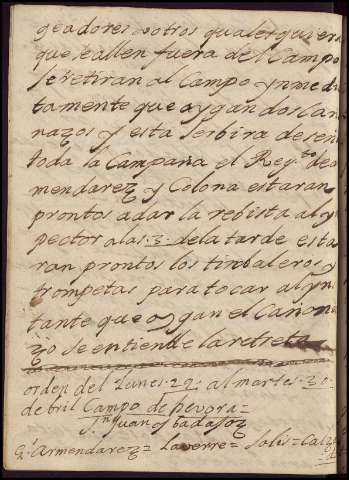 geadores o otros qualesquiera
que se allen fuera del Campo
se retiran al Campo ynmedia
tamente que oygan dos Caño
nazos y esta serbira de señ
toda la Campaña el Rey.to de a
mendarez y Colona estaran
prontos adar la rebista al yns
pector a las .3. de la tarde esta
ran prontos los timbaleros y
trompetas para tocar al yns
tante que oygan el Cañona
zo se entiende la retreta
orden del Lunes .29. al martes .30.
de bril Campo de hevora =
Sn Juan os badajoz
Armendarez = Laverre = Solis =